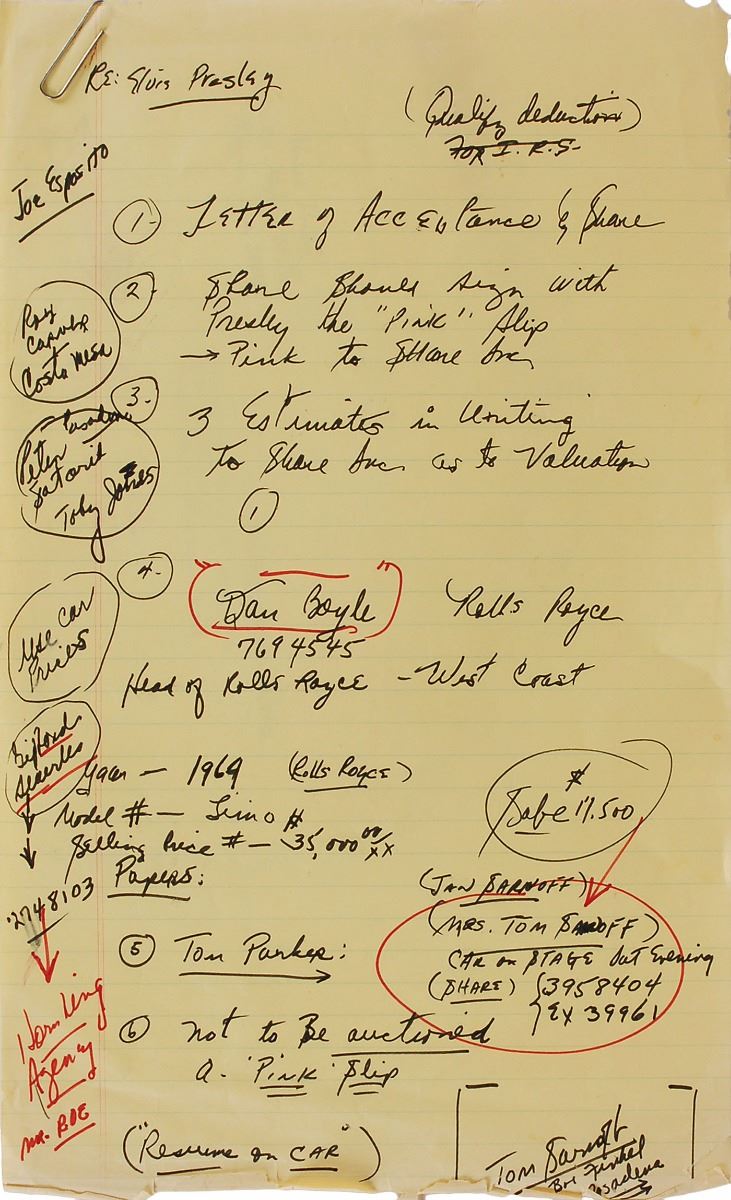 RE: Elvis Presley
(Qualify deduction)
FOR I.R.S.
Joe Esposito
1- Letter of Acceptance by Share
2- Share Should sign with
Presley the "Pink" Slip
→ Pink to Share Inc
Roy
Carver
Costa Mesa
3- 3 Estimates in Writing
to Share Inc. as to Valuation
1
Pasadena
Peter
Satorie
Toby Jones
4- "Dan Boyle" Rolls Royce
7694545
Head of Rolls Royce - West Coast
Use Car
Prices
Year - 1969 (Rolls Royce)
Model # - Limo
Selling Price # - $35,000 00/xx
Papers:
2748103
$
17.500
(JAN SARNOFF)
(MRS. TOM SARNOFF)
CAR on STAGE Sat Evening
(SHARE) (3958404
Ex 39961
5 Tom Parker:
6 not to Be auctioned
a. 'Pink' Slip
Agency
Mr. BOE
("Resume on CAR")
Tom Sarnoff
Pasadena